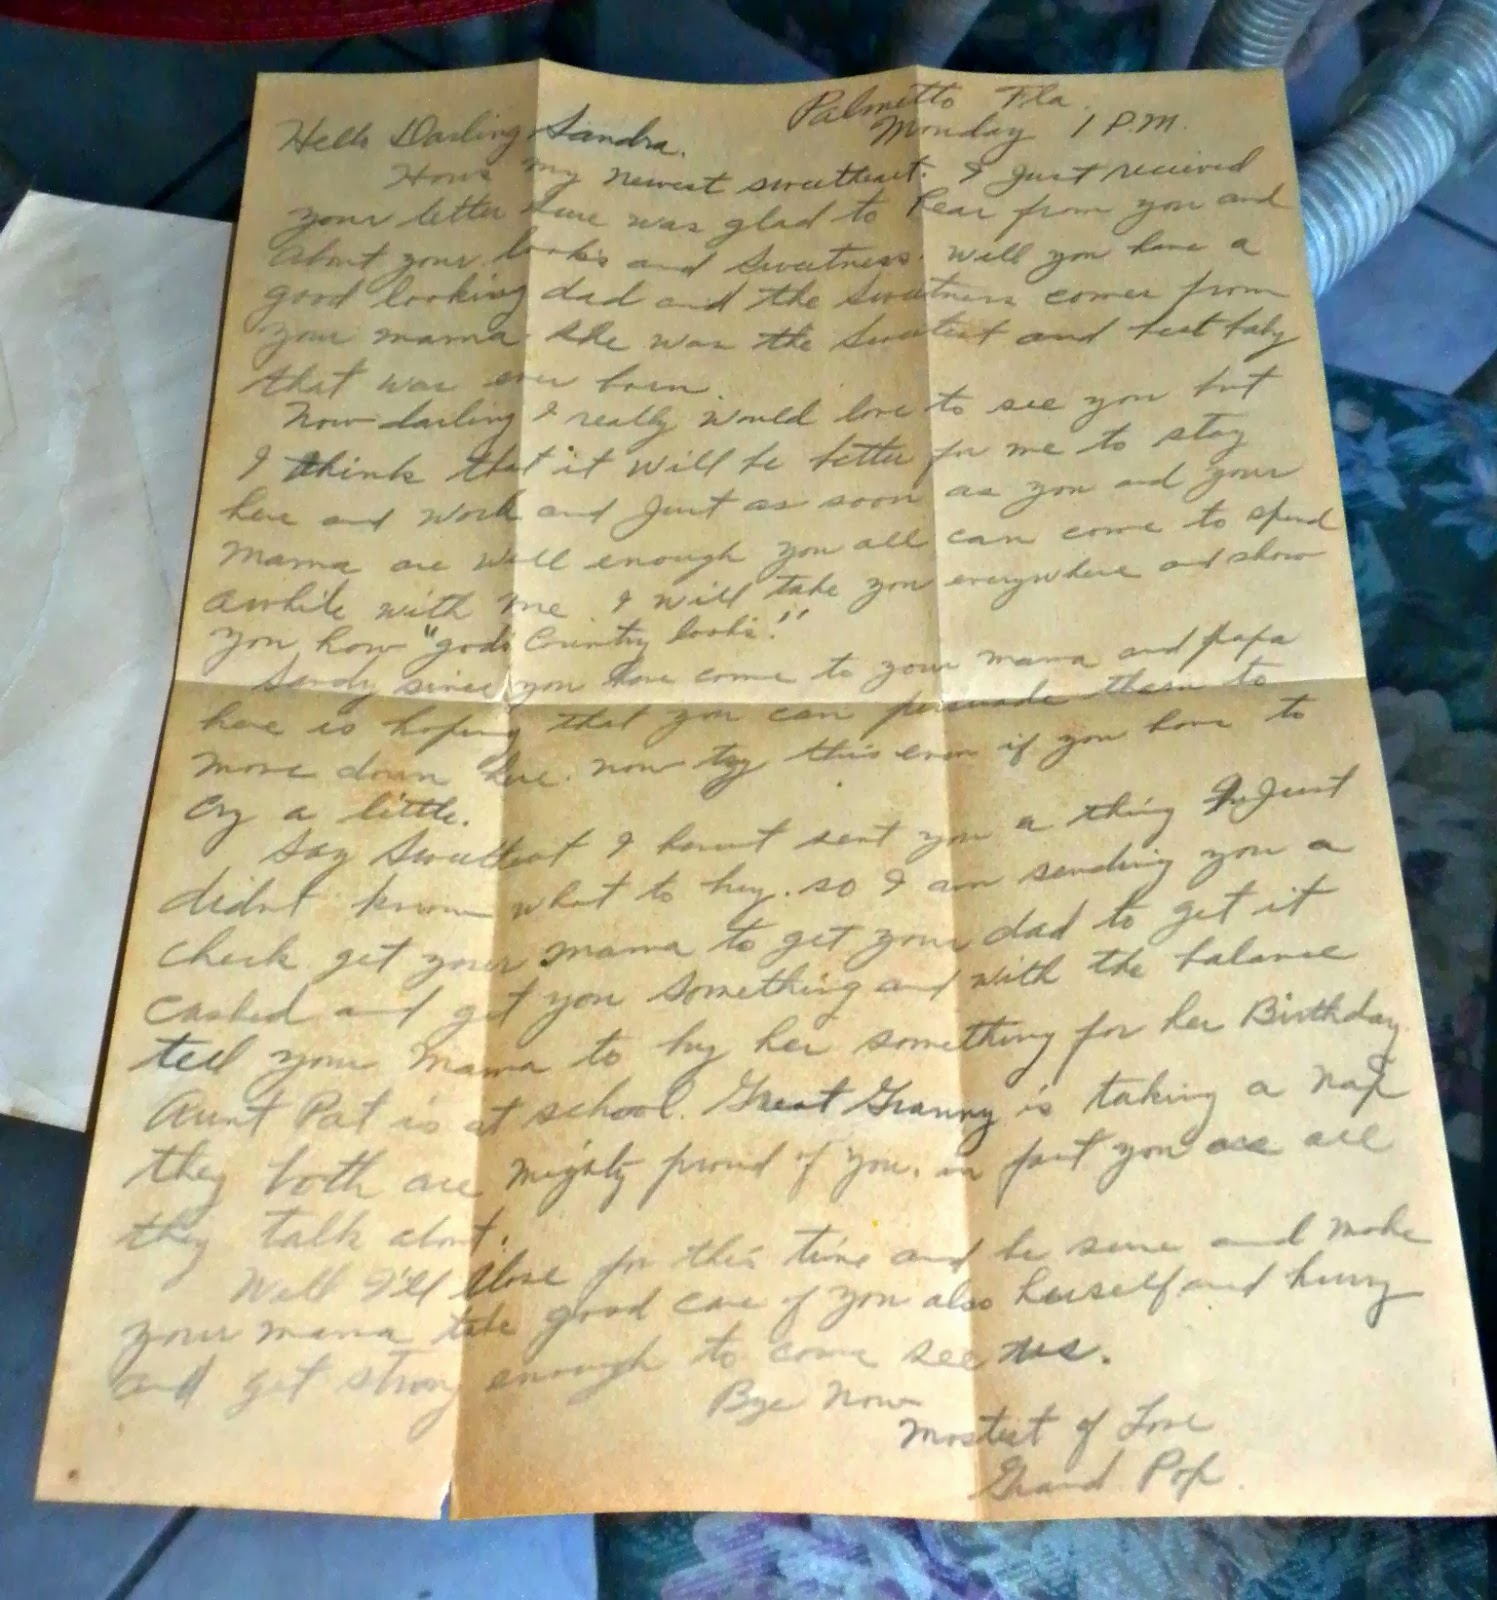 Palmetto Fla.
Monday 1 P.M.
Hello Darling Sandra.
Hows my newest sweetheart. I Just received
your letter here was glad to hear from you and
about your looks and sweetness. Well you have a
good looking dad and the sweetness comes from
your mama she was the sweetest and best baby
that was ever born.
Now darling I really would love to see you but
I think that it will be better for me to stay
here and work and Just as soon as you and your
mama are well enough you all can come to spend
awhile with me. I will take you everywhere and show
you how "gods Country looks."
Sandy since you have come to your mama and papa
here is hoping that you can persuade them to
move down here. now try this even if you have to
cry a little.
Say Sweetheart I havnt sent you a thing I Just
didnt know what to buy. so I am sending you a
check. get your mama to get your dad to get it
cashed and get you something and with the balance
tell your mama to buy her something for her Birthday
Aunt Pat is at school. Great Granny is taking a nap
they both are mighty proud of you. in fact you are all
they talk about.
Well I'll close for this time and be sure and make
your mama take good care of you also herself and hurry
and get strong enough to come see us.
Bye Now
Mostest of Love
Grand Pop